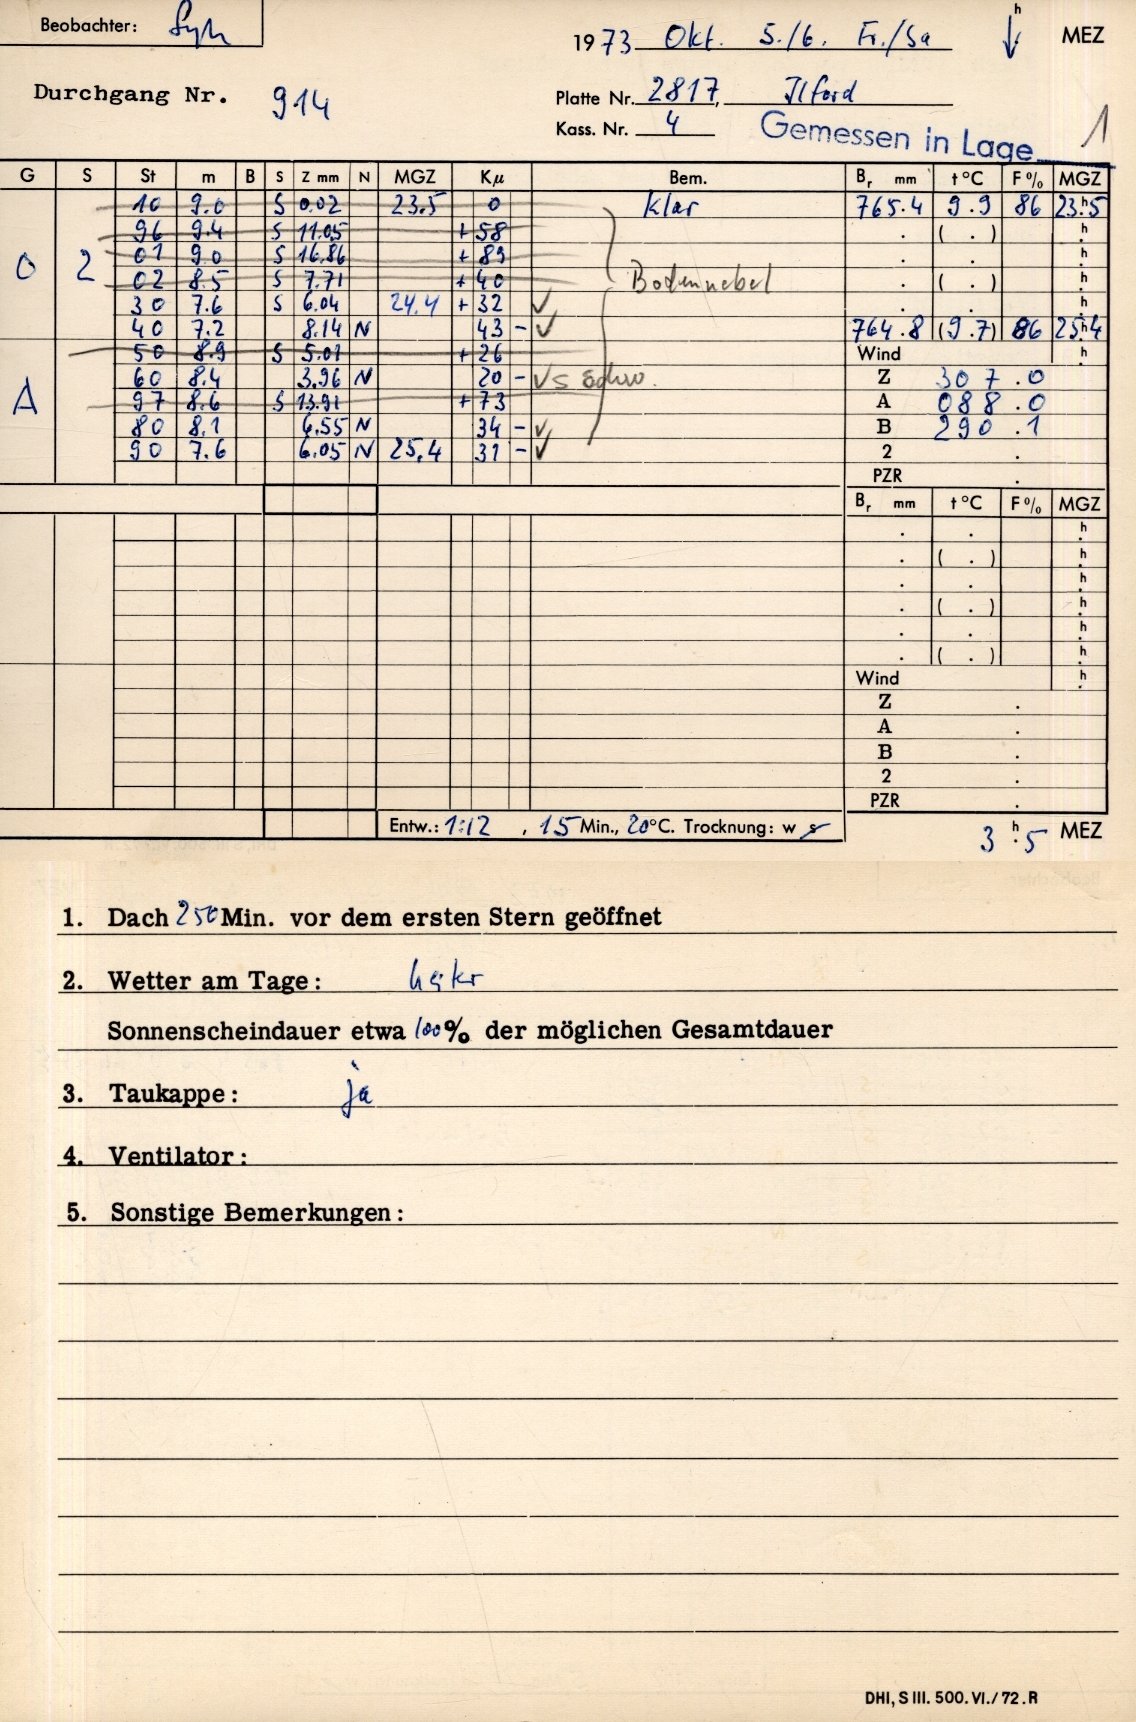 Beobachter:
1973 Okt. 5./6. Fr./Sa h MEZ
Durchgang Nr. 914
Platte Nr. 2817, Ilford
Kass. Nr. 4
Gemessen in Lage 1
G S St m B S Z mm N MGZ Kμ Bem. Br mm t°C F% MGZ
10 9.0 S 0.02 23.5 0 Klar 765.4 9.9 86 23h.5
96 9.4 S 11.05 +58 . ( . ) h
0 2 01 9.0 S 16.86 +89 . . h
02 8.5 S 7.71 +40 Bodennebel . ( . ) h
30 7.6 S 6.04 24.4 +32 ✓ . . h
40 7.2 8.14 N 43 - ✓ 764.8 (9.7) 86 25h.4
50 8.9 S 5.01 +26 Wind h
60 8.4 3.96 N 20 - ✓ s schw. Z 307.0
A 97 8.6 S 13.91 +73 A 088.0
80 8.1 6.55 N 34 - ✓ B 290.1
90 7.6 6.05 N 25.4 31 - ✓ 2 .
PZR .
Br mm t°C F% MGZ
. . h
. ( . ) h
. . h
. ( . ) h
. . h
. ( . ) h
Wind h
Z .
A .
B .
2 .
PZR .
Entw.: 1:12, 15 Min., 20°C. Trocknung: w s
3h.5 MEZ
1. Dach 250 Min. vor dem ersten Stern geöffnet
2. Wetter am Tage: heiter
Sonnenscheindauer etwa 100% der möglichen Gesamtdauer
3. Taukappe: ja
4. Ventilator:
5. Sonstige Bemerkungen:
DHI, S III. 500. VI./72. R